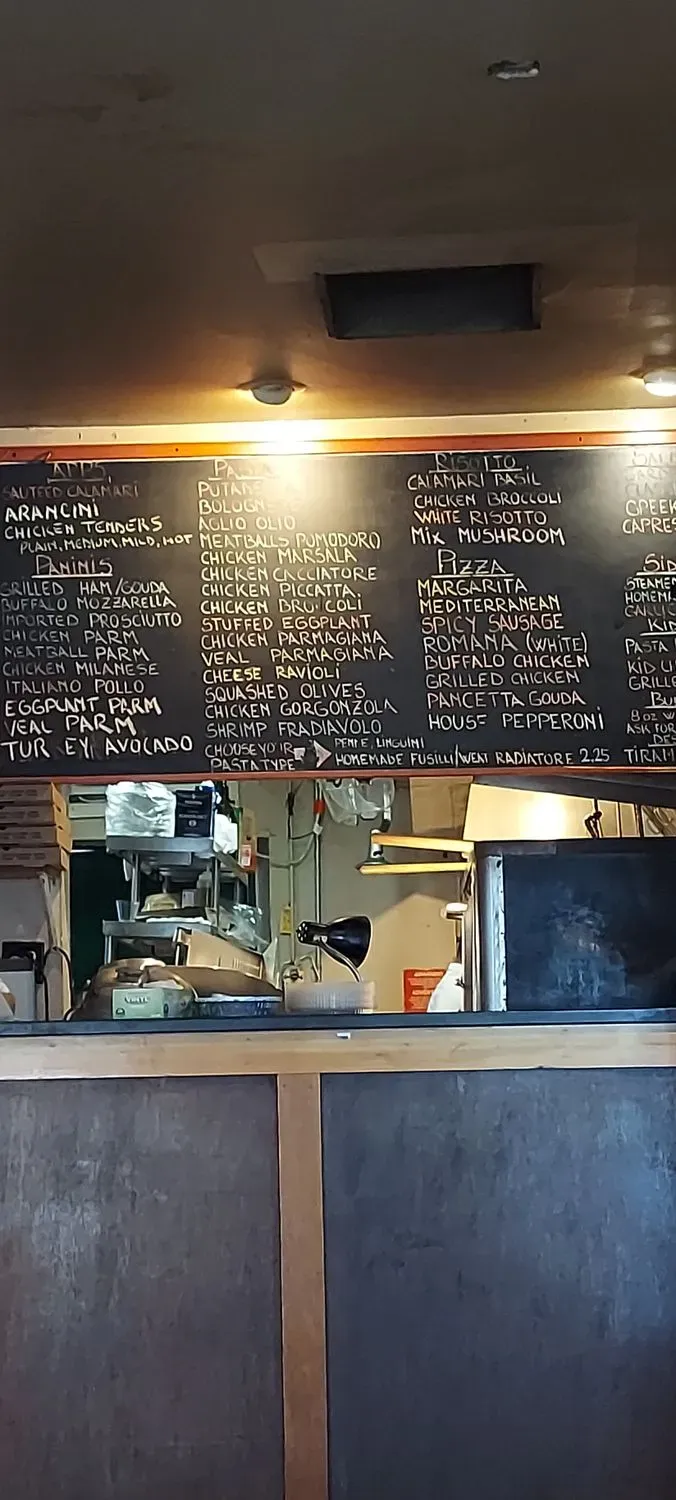 APPS
SAUTEED CALAMARI
ARANCINI
CHICKEN TENDERS
PLAIN, MEDIUM, MILD, HOT
PANINIS
GRILLED HAM/GOUDA
BUFFALO MOZZARELLA
IMPORTED PROSCIUTTO
CHICKEN PARM
MEATBALL PARM
CHICKEN MILANESE
ITALIANO POLLO
EGGPLANT PARM
VEAL PARM
TUR EY AVOCADO
AGLIO OLIO
MEATBALLS POMODORO
CHICKEN MARSALA
CHICKEN CACCIATORE
CHICKEN PICCATTA
CHICKEN BRO COLI
STUFFED EGGPLANT
CHICKEN PARMAGIANA
VEAL PARMAGIANA
CHEESE RAVIOLI
SQUASHED OLIVES
CHICKEN GORGONZOLA
SHRIMP FRADIAVOLO
CHOOSE YO R
PASTA TYPE
PENE, LINGUINI
HOMEMADE FUSILLI/WEAT RADIATORE 2.25
RISOTTO
CALAMARI BASIL
CHICKEN BROCCOLI
WHITE RISOTTO
MIX MUSHROOM
PIZZA
MARGARITA
MEDITERRANEAN
SPICY SAUSAGE
ROMANA (WHITE)
BUFFALO CHICKEN
GRILLED CHICKEN
PANCETTA GOUDA
HOUSE PEPPERONI
GREEK
CAPRES
SID
STEAMED
HOMEM
KI
PASTA
KID
GRILLE
BU
8 OZ W
ASK FOR
DES
TIRAM
VINYL